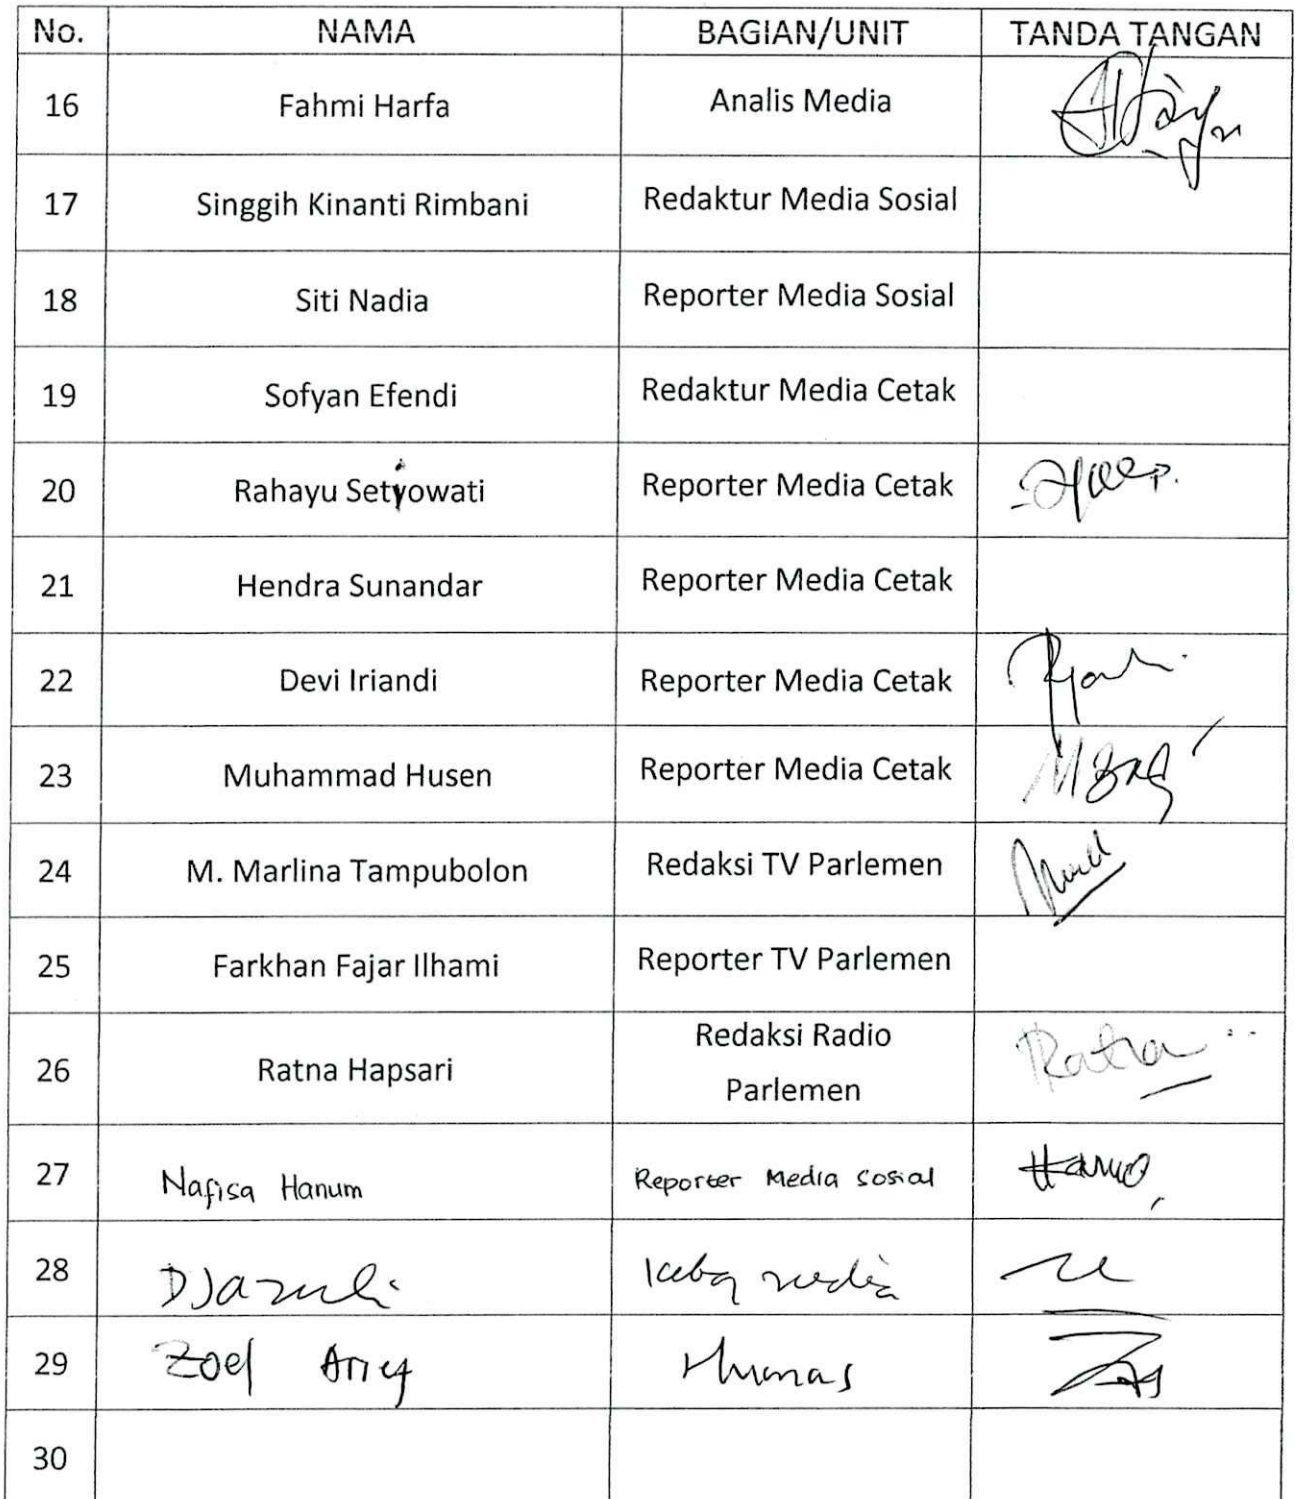 No. NAMA BAGIAN/UNIT TANDA TANGAN
16 Fahmi Harfa Analis Media
17 Singgih Kinanti Rimbani Redaktur Media Sosial
18 Siti Nadia Reporter Media Sosial
19 Sofyan Efendi Redaktur Media Cetak
20 Rahayu Setiyowati Reporter Media Cetak
21 Hendra Sunandar Reporter Media Cetak
22 Devi Iriandi Reporter Media Cetak
23 Muhammad Husen Reporter Media Cetak
24 M. Marlina Tampubolon Redaksi TV Parlemen
25 Farkhan Fajar Ilhami Reporter TV Parlemen
26 Ratna Hapsari Redaksi Radio
Parlemen Ratna
27 Nafisa Hanum Reporter Media Sosial
28 Djazuli media
29 Zoel Arief Humas
30